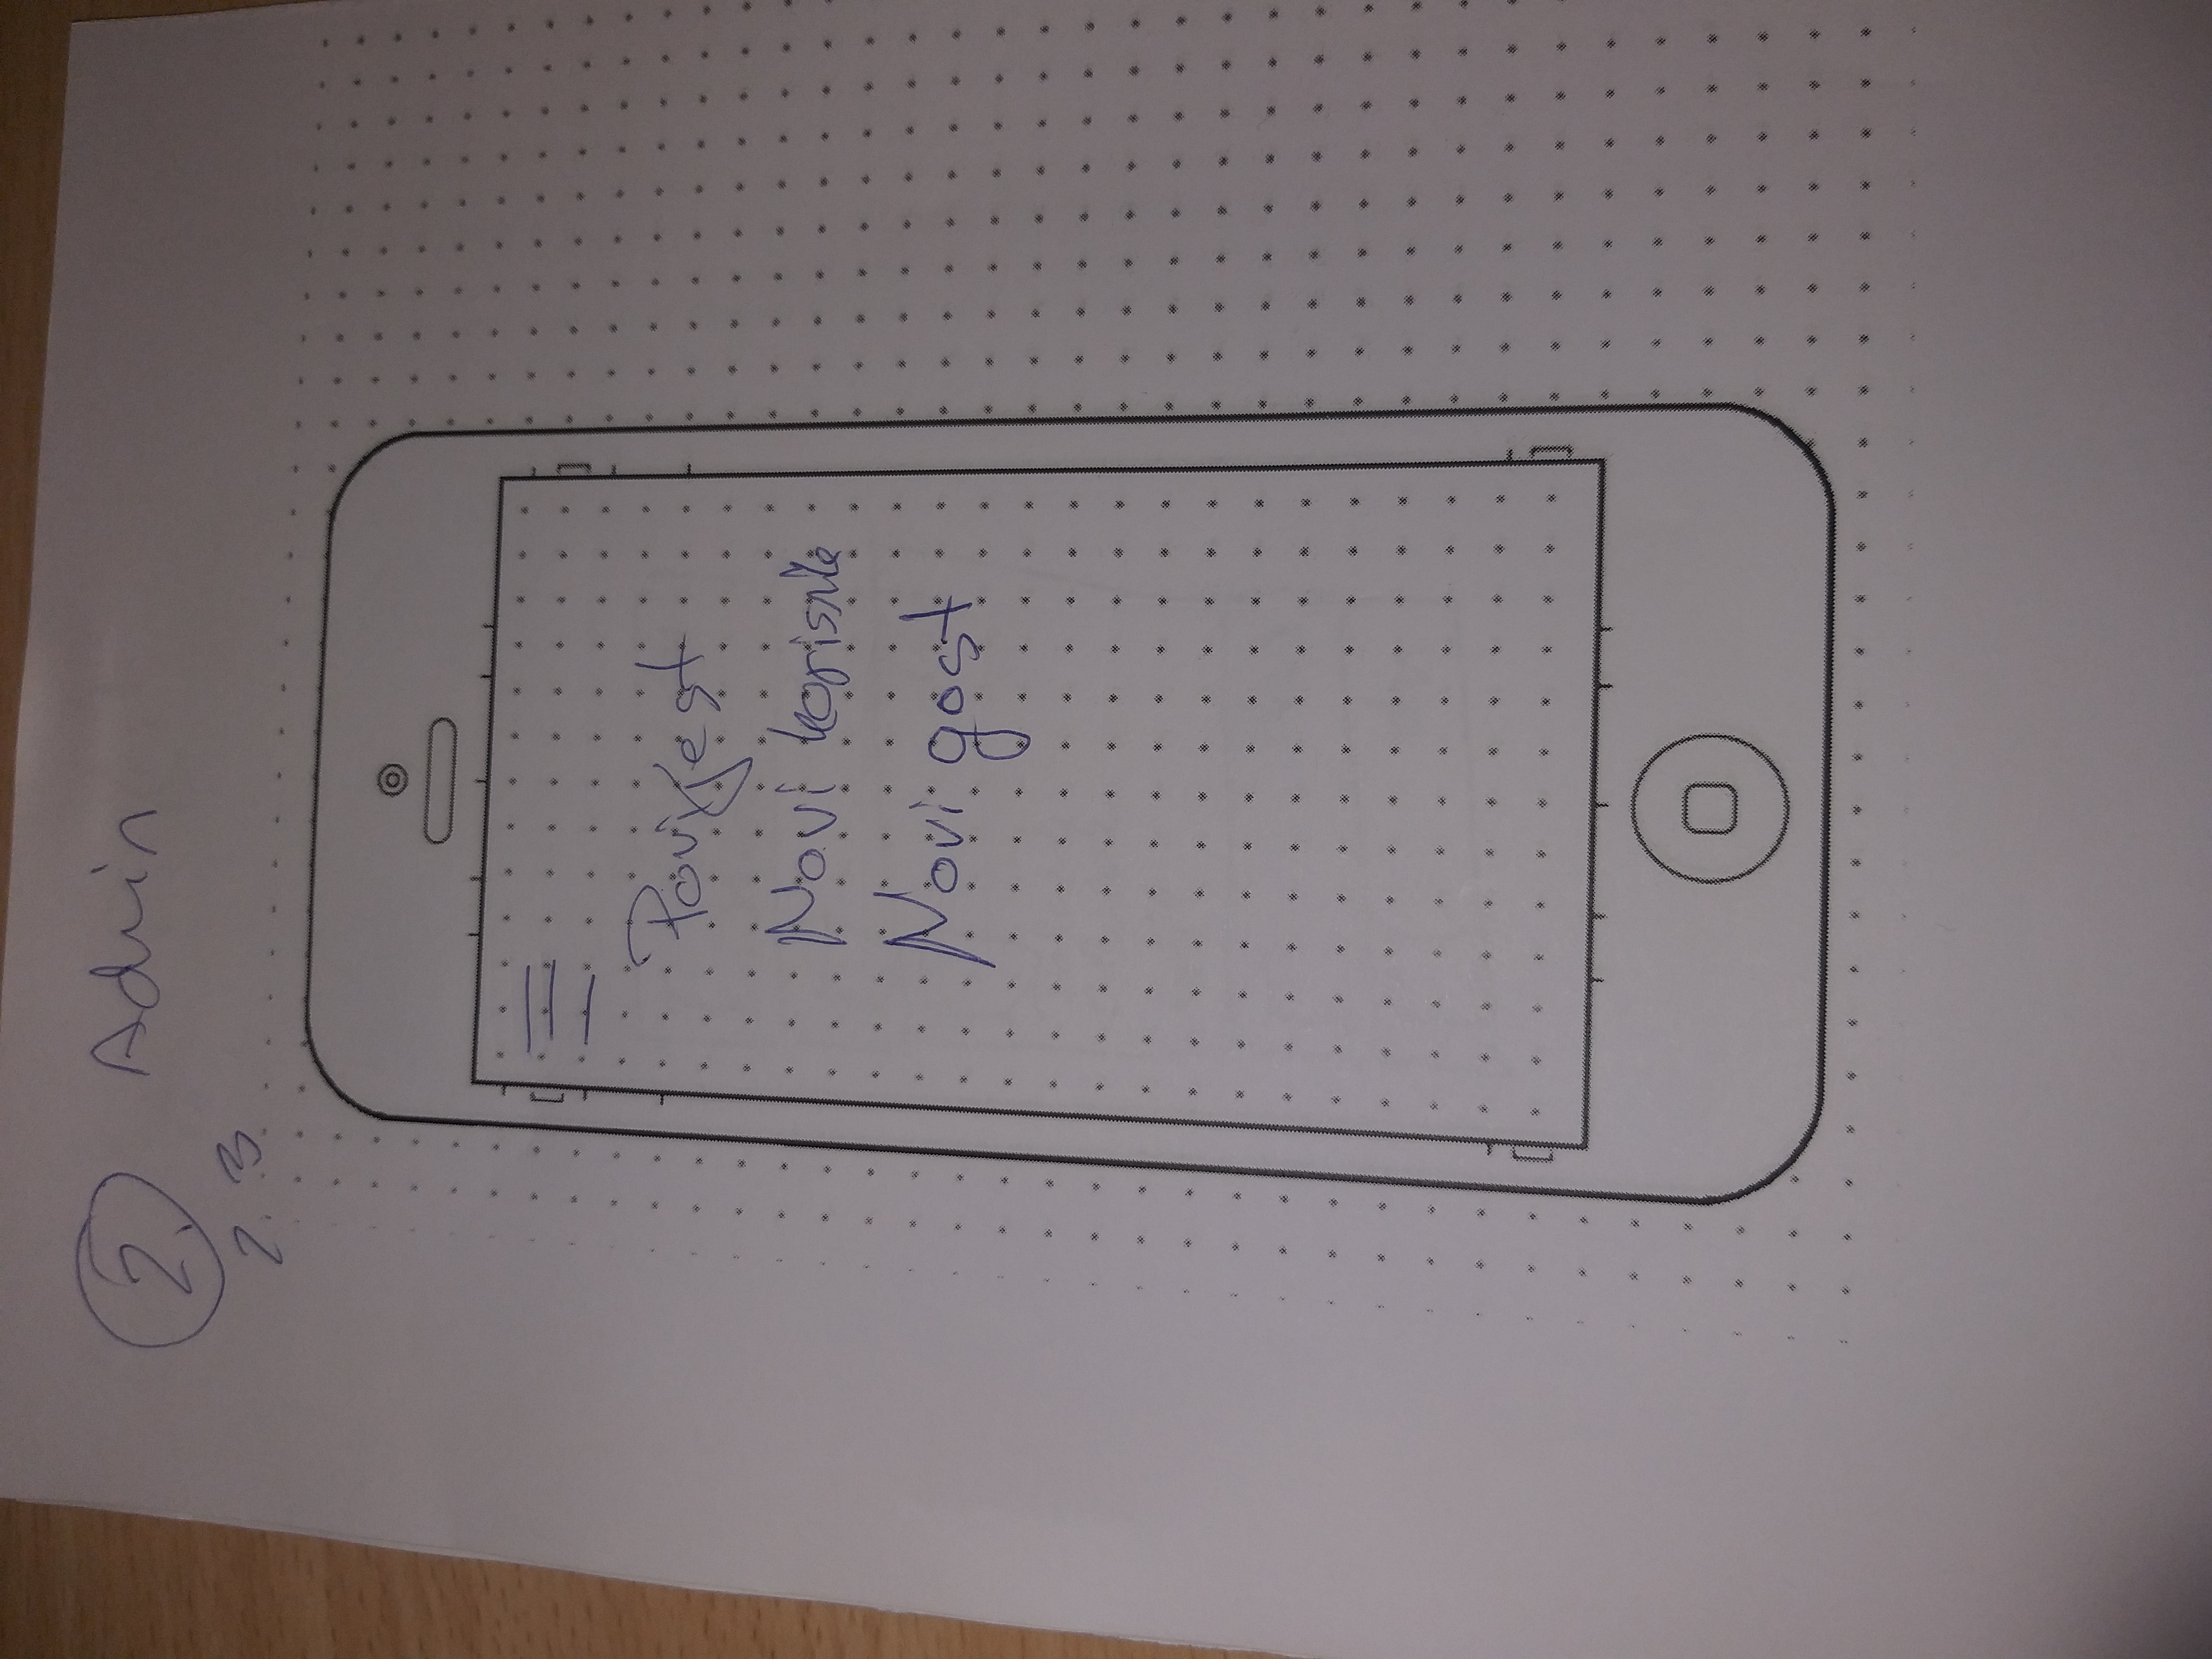 2. Admin
2.3
Povijest
Novi korisnik
Novi gost